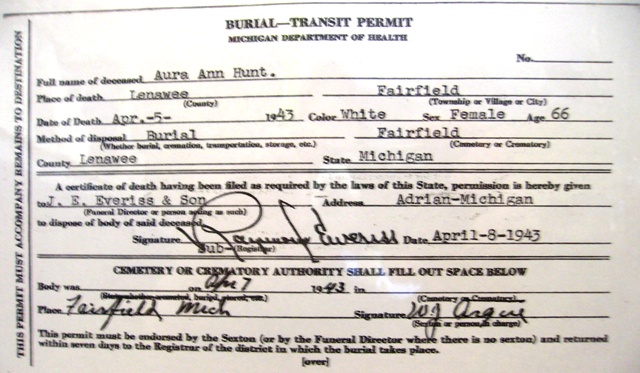 BURIAL—TRANSIT PERMIT
MICHIGAN DEPARTMENT OF HEALTH
No.
Full name of deceased Aura Ann Hunt.
Place of death Lenawee Fairfield
(County) (Township or Village or City)
Date of Death Apr.-5- 1943 Color White Sex Female Age 66
Method of disposal Burial Fairfield
(Whether burial, cremation, transportation, storage, etc.) (Cemetery or Crematory)
County Lenawee State Michigan
A certificate of death having been filed as required by the laws of this State, permission is hereby given
to J. E. Everiss & Son Address Adrian-Michigan
(Funeral Director or person acting as such)
to dispose of body of said deceased.
Signature Raymond Everiss Date April-8-1943
Sub- (Registrar)
CEMETERY OR CREMATORY AUTHORITY SHALL FILL OUT SPACE BELOW
Body was on Apr 7 1943 in
(Cemetery or Crematory)
Place Fairfield Mich Signature W J Argue
(Sexton or person in charge)
This permit must be endorsed by the Sexton (or by the Funeral Director where there is no sexton) and returned
within seven days to the Registrar of the district in which the burial takes place.
[over]
THIS PERMIT MUST ACCOMPANY REMAINS TO DESTINATION